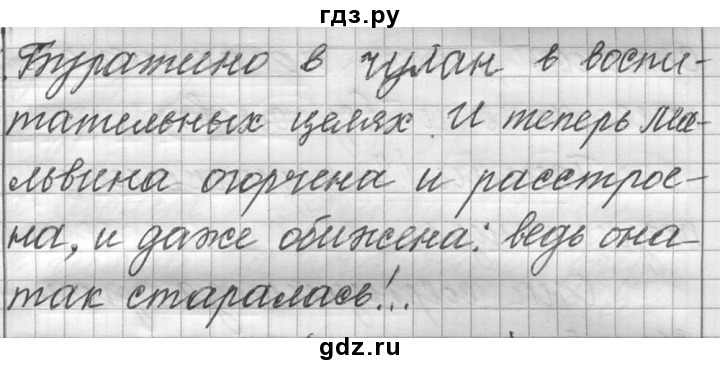 гдз.ру
Буратино в чулан в воспи-
тательных целях. И теперь Ма-
львина огорчена и расстрое-
на, и даже обижена: ведь она
так старалась!..
gdz.ru